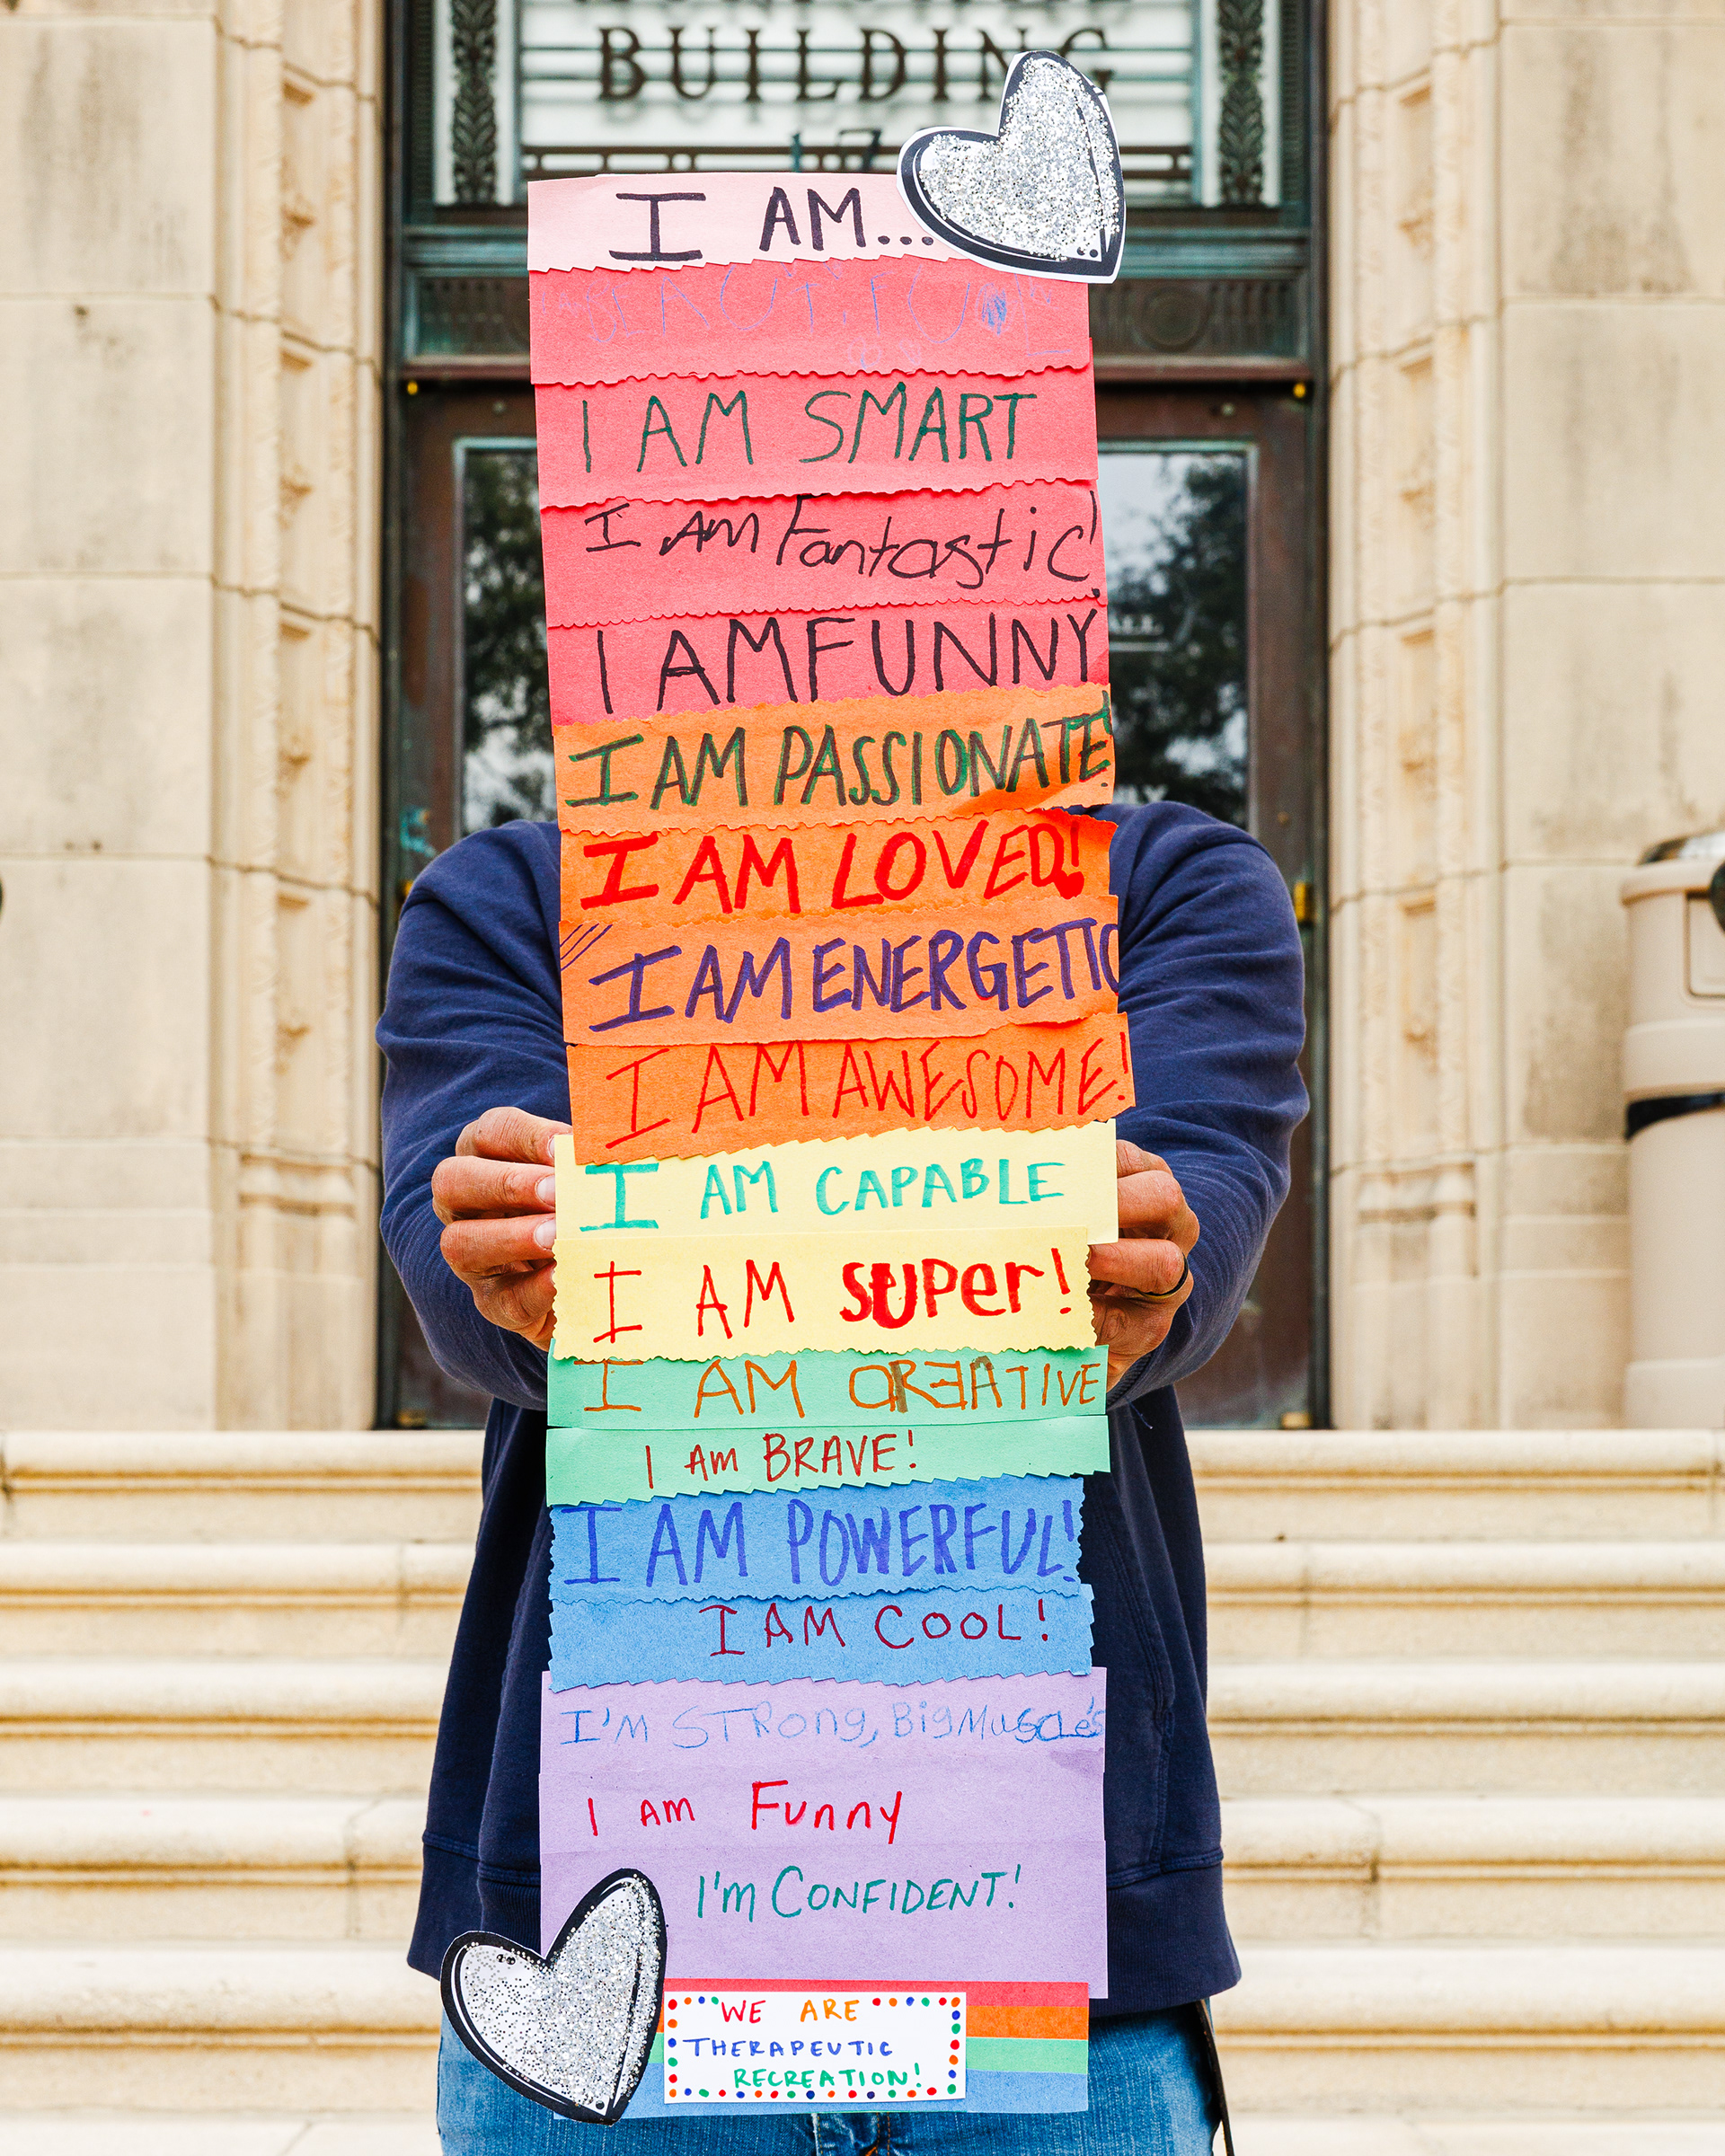 BUILDING
17
I AM...
BEAUTIFUL
I AM SMART
I AM Fantastic!
I AM FUNNY
I AM PASSIONATE!
I AM LOVED!
I AM ENERGETIC
I AM AWESOME!
I AM CAPABLE
I AM SUPer!
I AM CREATIVE
I AM BRAVE!
I AM POWERFUL!
I AM COOL!
I'M STRong, BigMuscle's
I AM Funny
I'm CONFIDENT!
WE ARE
THERAPEUTIC
RECREATION!